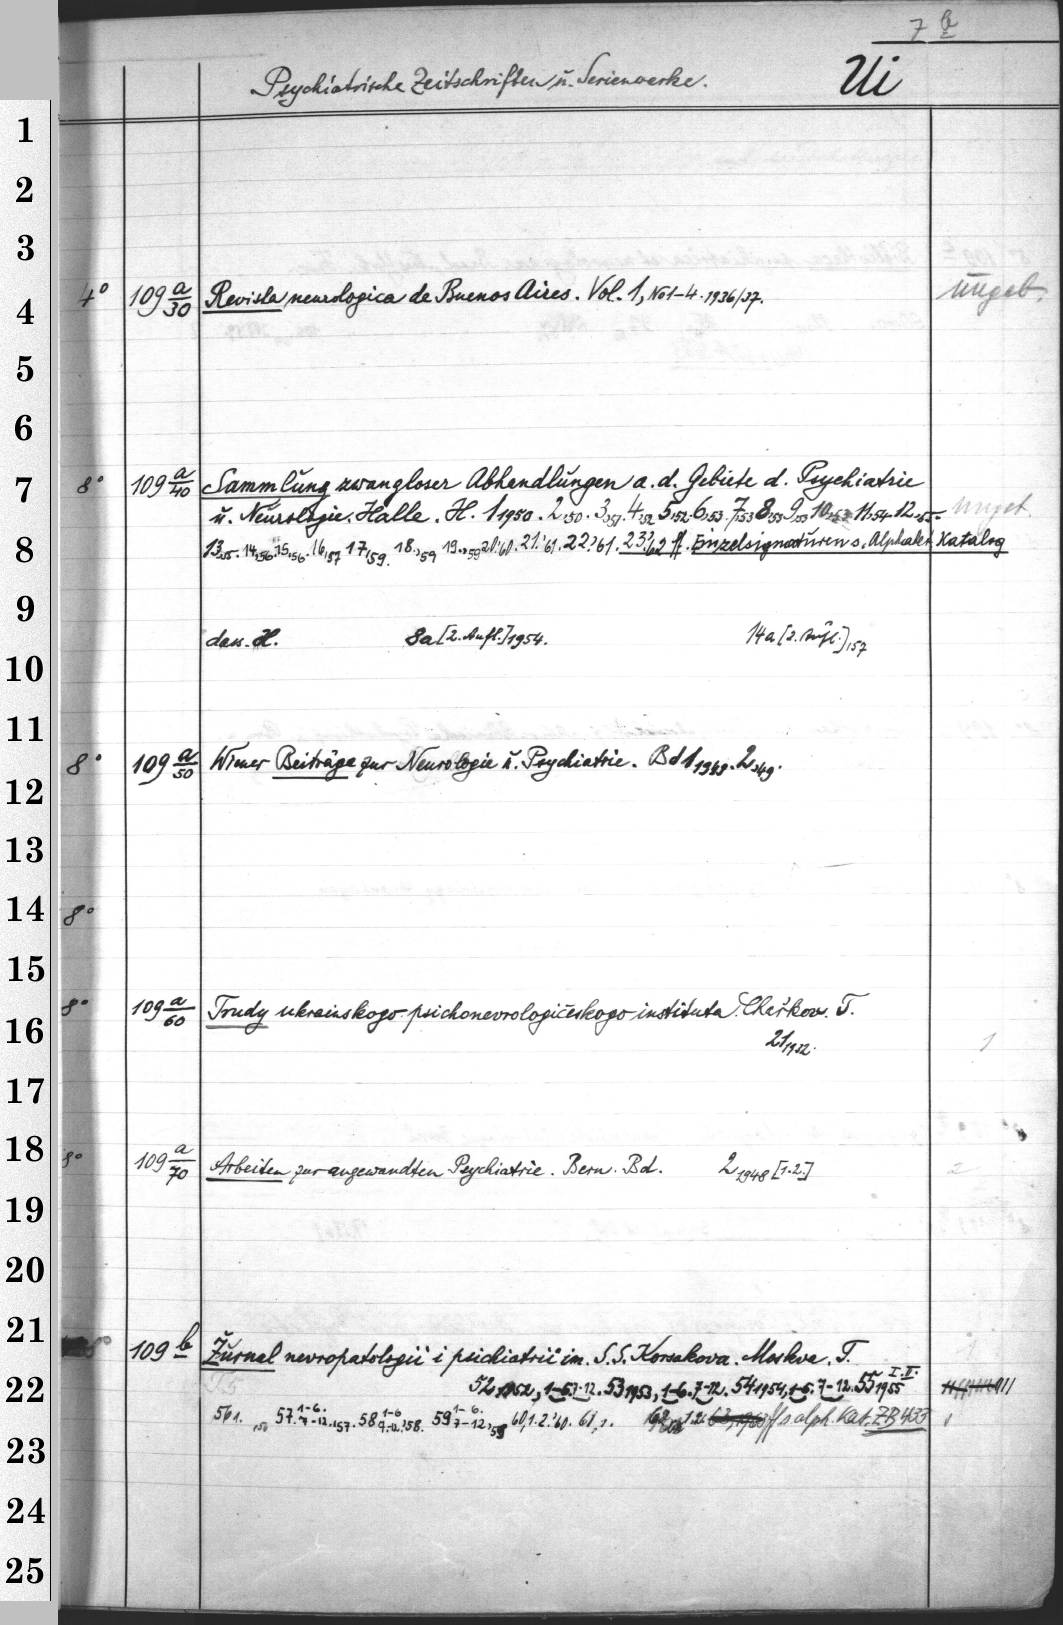 7 b
Psychiatrische Zeitschriften u. Serienwerke. Ui
1
2
3
4 4° 109 a/30 Revista neurologica de Buenos Aires. Vol. 1, No 1-4. 1936/37. ungeb.
5
6
7 8° 109 a/40 Sammlung zwangloser Abhandlungen a. d. Gebiete d. Psychiatrie
u. Neurologie. Halle. H. 1 1950. 2,50. 3,51. 4,52 5,52. 6,53. 7,53 8,53 9,53 10,53 11,54. 12,55. ungeb.
8 13,55. 14,56. 15,56. 16,57 17,59. 18,59 19,59 20,'60. 21,'61. 22,'61. 23,'62 ff. Einzelsignaturen s. Alphabet. Katalog
9
dass. H. 8a [2. Aufl.] 1954. 14a [2. Aufl.],57
10
11
8° 109 a/50 Wiener Beiträge zur Neurologie u. Psychiatrie. Bd 1 1949. 2,49.
12
13
14 8°
15
8° 109 a/60 Trudy ukrainskogo psichonevrologičeskogo instituta. Char'kov. T.
16 21 1932. 1
17
18 8° 109 a/70 Arbeiten zur angewandten Psychiatrie. Bern. Bd. 2 1948 [1.2.] 2
19
20
21 8° 109 b Žurnal nevropatologii i psichiatrii im. S. S. Korsakova. Moskva. T.
22 52, 1952, 1-6. 7-12. 53 1953, 1-6. 7-12. 54 1954, 1-6. 7-12. 55 1955 I-II.
56 1. 57 1-6. 7-12,'57. 58 1-6 7-12,'58. 59 1-6. 7-12,'59 60,1.2.'60. 61, 62 63, 1963 ff s. alph. Kat. ZB 433
23
24
25